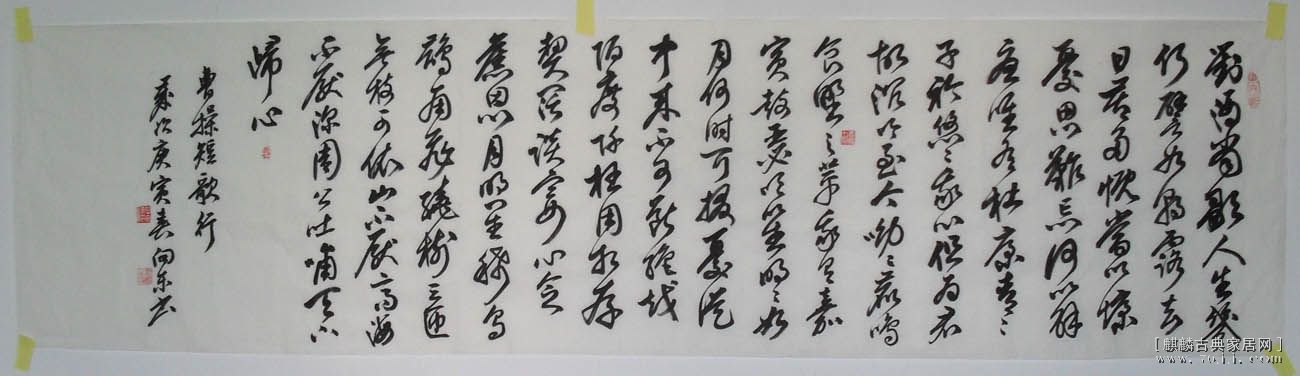 對酒當歌人生幾
何譬如朝露去
日苦多慨當以慷
憂思難忘何以解
憂唯有杜康青々
子衿悠々我心但為君
故沉吟至今呦々鹿鳴
食野之苹我有嘉
賓鼓瑟吹笙明々如
月何時可掇憂從
中來不可斷絕越
陌度阡枉用相存
契闊談宴心念
舊恩月明星稀烏
鵲南飛繞樹三匝
無枝可依山不厭高海
不厭深周公吐哺天下
歸心
曹操短歌行
歲次庚寅春向東书
[麒麟古典家居网]